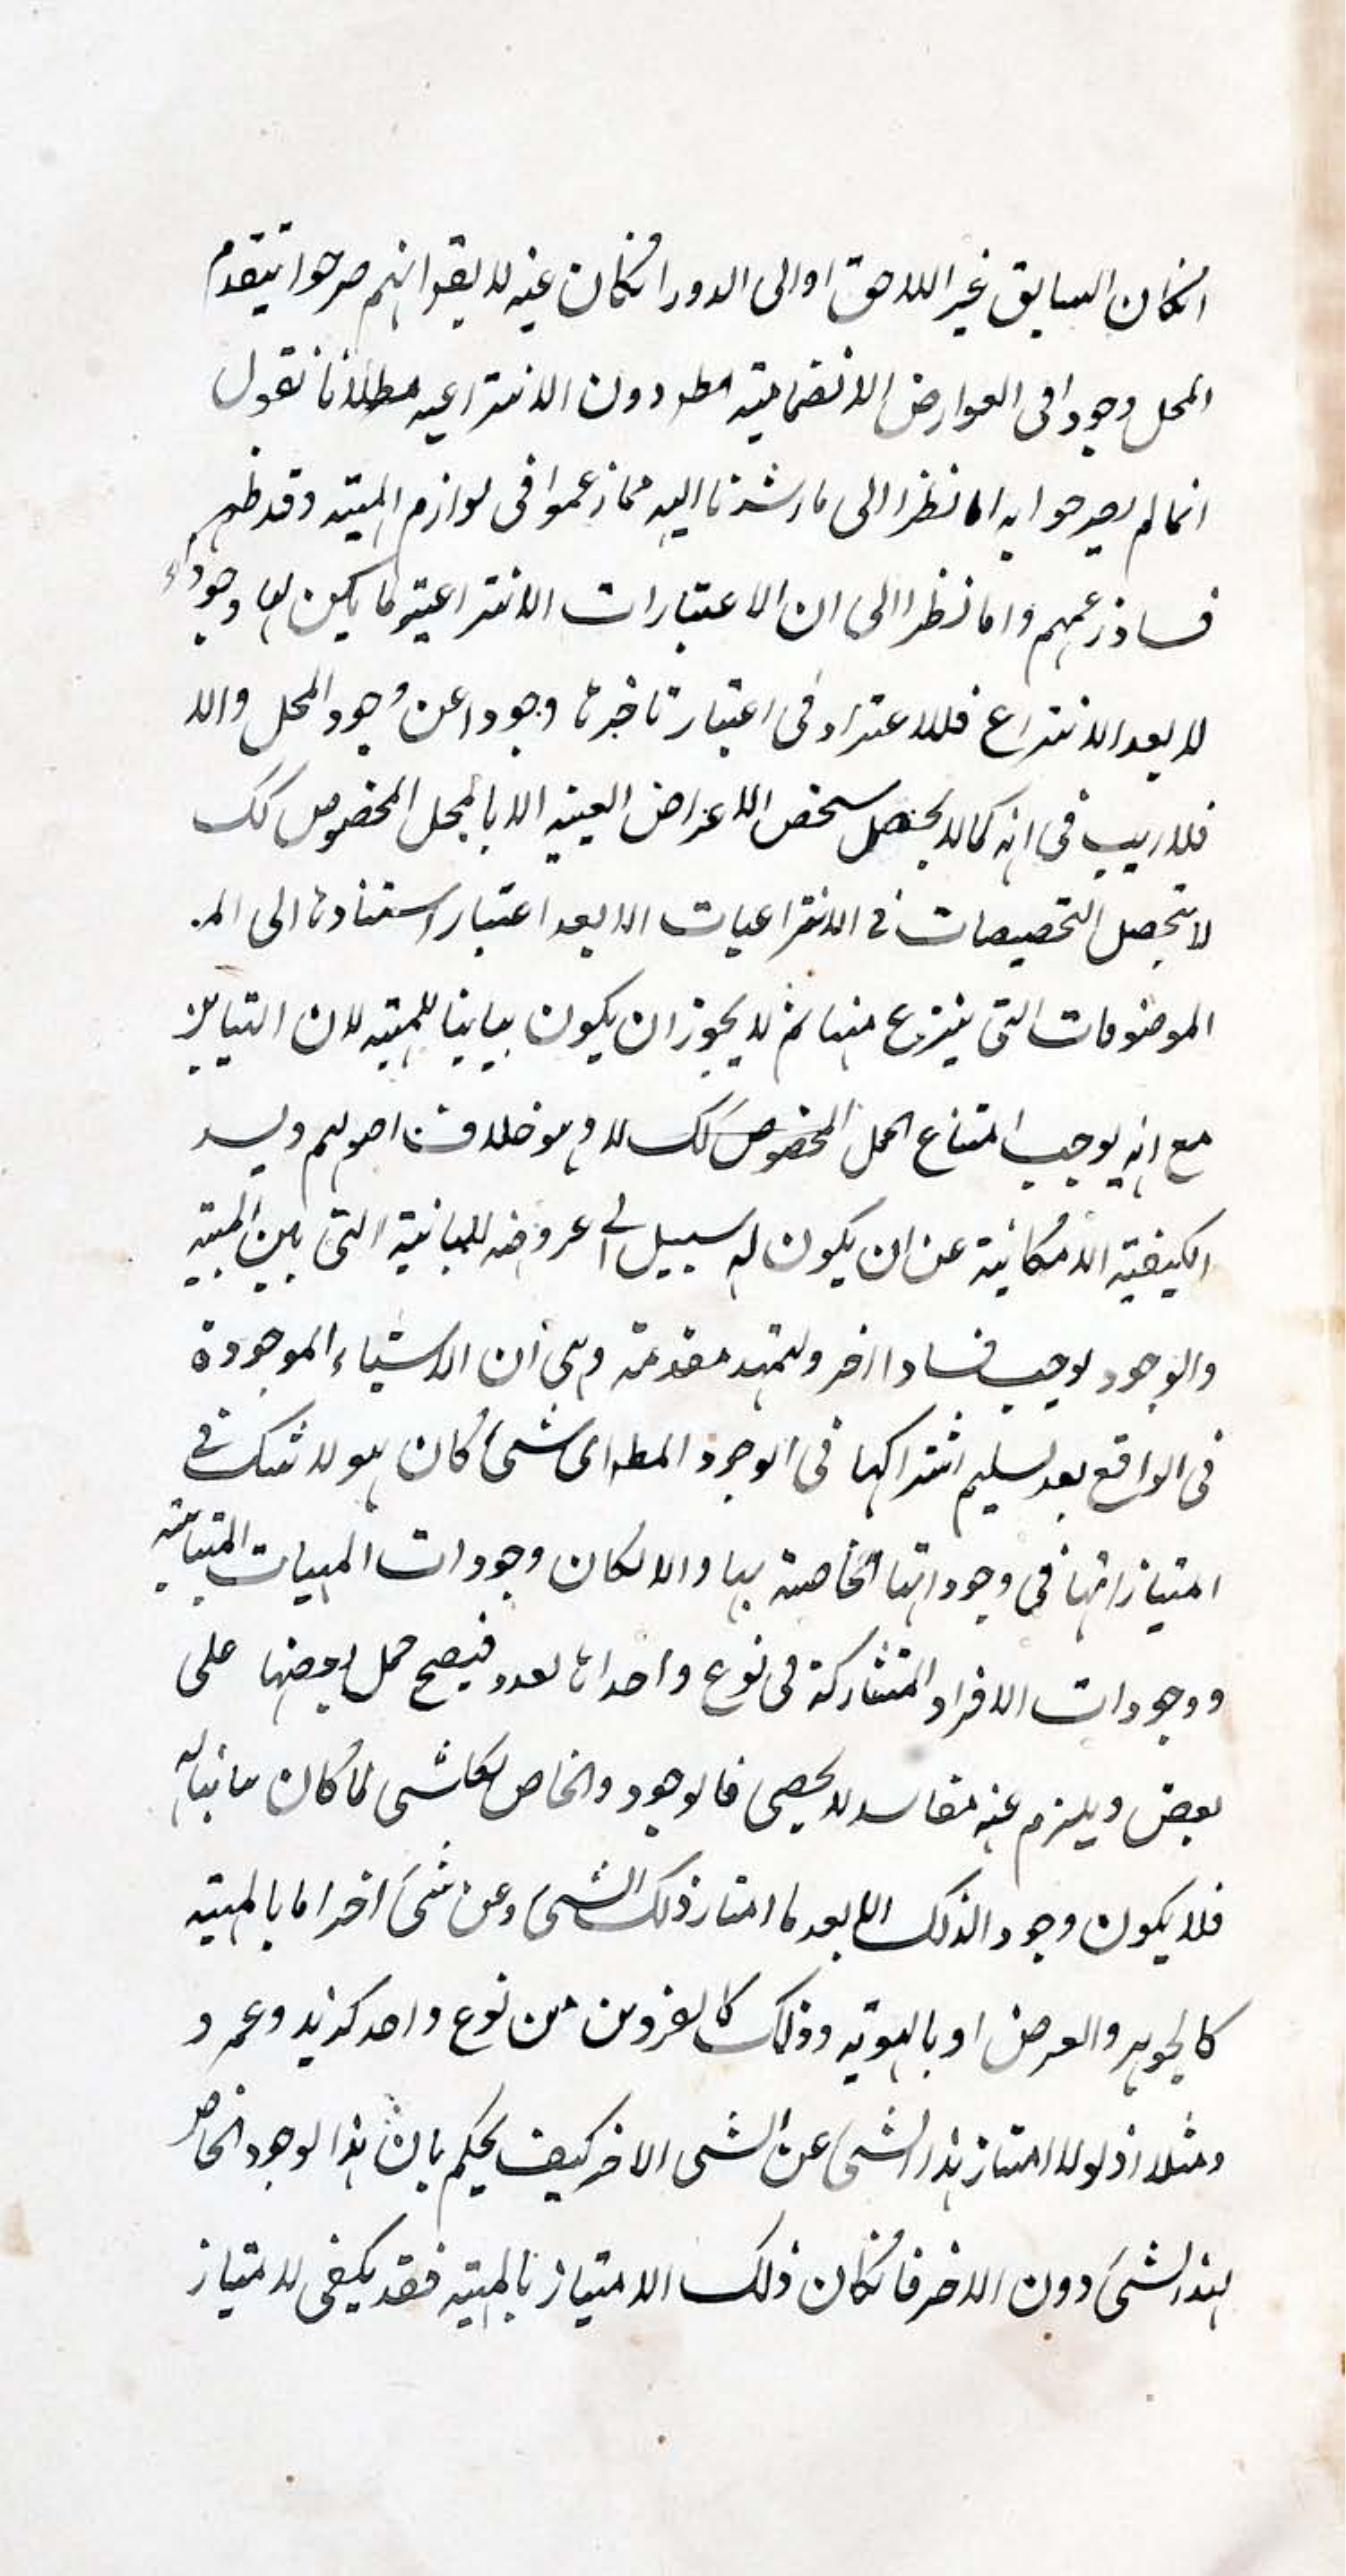 انكان السابق غير اللاحق او الى الدور انكان عينه لا يقو انهم صرحوا بتقدم
المحل وجودا فى العوارض الانضمامية مطه دون الانتزاعيه مطلانا نقول
انما لم يصرحوا به اما نظرا الى ما اشرنا اليه مما زعموا فى لوازم المهية وقد ظهر
فساد زعمهم واما نظرا الى ان الاعتبارات الانتزاعية ما يكن لها وجودا
لا بعد الانتزاع فلا اعتداد فى اعتبار تاخرها وجودا عن وجود المحل والا
فلا ريب فى انه كما لا يحصل تشخص الاعراض العينيه الا بالمحل المخصوص كك
لا يتحصل التخصيصات فى الانتزاعيات الا بعد اعتبار استنادها الى
الموصوفات التى ينتزع منها ثم لا يجوز ان يكون مباينا للمهية لان التباين
مع انه يوجب امتناع الحمل المخصوص كك لا وهو خلاف اصولهم ويسد
الكيفية الامكانية عن ان يكون له سبيل الى عروضه للمباينية التى بين المهية
والوجود يوجب فسادا اخر ولنمهد مقدمة وهى ان الاشياء الموجودة
فى الواقع بعد تسليم اشتراكها فى الوجود المطه اى شىء كان هو لا شك فى
امتيازاتها فى وجوداتها الخاصة بها والا لكان وجودات المهيات المتباينة
ووجودات الافراد المتشاركة فى نوع واحدا بالعدد فيصح حمل بعضها على
بعض ويلزم عنه مفاسد لا يحصى فالوجود والخاص لكل شىء لما كان مباينا له
فلا يكون وجود الذلك الا بعد ما امتاز ذلك الشىء وعن شىء اخر اما بالمهية
كالجوهر والعرض او بالهوية وذلك كالفردين من نوع واحد كزيد وعمرو
ومثلا اذ لو لا امتياز هذا الشىء عن الشىء الاخر كيف يحكم بان هذا لوجود الخاص
لهذا الشىء دون الاخر فانكان ذلك الامتياز بالمهية فقد يكفى لامتياز